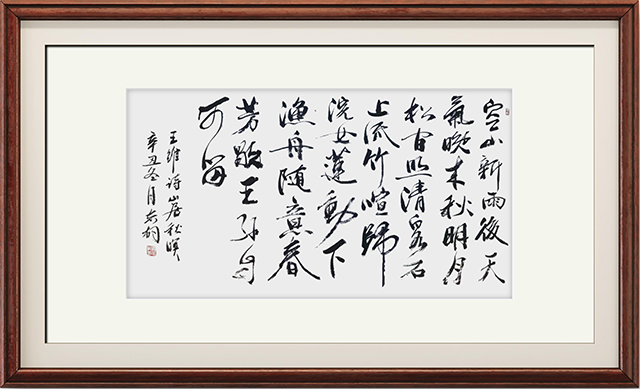 空山新雨後天
氣晚来秋明月
松間照清泉石
上流竹喧歸
浣女蓮動下
漁舟隨意春
芳歇王孫自
可留
王維詩山居秋暝
辛丑冬月